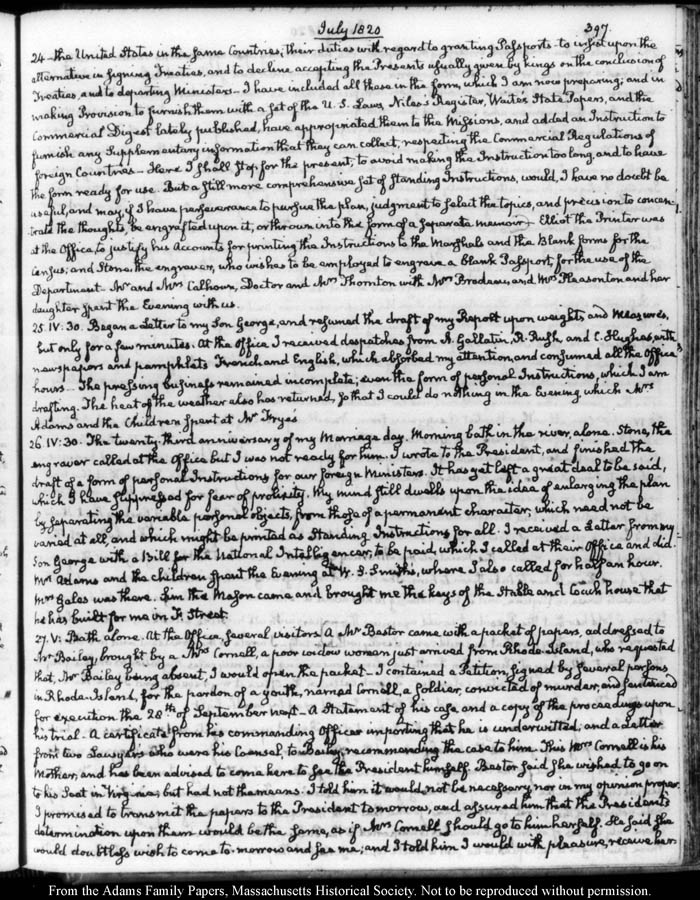 July 1820
397.
24 the United States in the same Countries; their duties with regard to granting Passports to insist upon the
alternative in signing Treaties, and to decline accepting the Presents usually given by kings on the conclusion of
Treaties, and to departing Ministers. I have included all these in the form, which I am now preparing; and in
making Provision to furnish them with a set of the U. S. Laws, Niles's Register, Wait's State Papers, and the
Commercial Digest lately published, have appropriated them to the Missions, and added an Instruction to
furnish any Supplementary information that they can collect, respecting the Commercial Regulations of
foreign Countries. Here I shall stop for the present; to avoid making the Instruction too long, and to have
the form ready for use. But a still more comprehensive set of Standing Instructions, would, I have no doubt be
useful, and may, if I have perseverance to pursue the plan, judgment to select the topics, and precision to concen-
trate the thoughts, be engrafted upon it, or thrown into the form of a separate memoir. Elliot the Printer was
at the Office, to justify his Accounts for printing the Instructions to the Marshals and the Blank forms for the
Census; and Stone, the engraver, who wishes to be employed to engrave a blank Passport, for the use of the
Department. Mr. and Mrs. Calhoun, Doctor and Mrs. Thornton with Mrs. Brodeau, and Mrs. Pleasonton and her
daughter spent the Evening with us.
25. IV: 30. Began a Letter to my Son George, and resumed the draft of my Report upon weights and Measures,
but only for a few minutes. At the office I received despatches from A. Gallatin, R. Rush, and C. Hughes, with
newspapers and pamphlets French and English, which absorbed my attention, and consumed all the Office
hours. The pressing business remained incomplete; even the form of personal Instructions, which I am
drafting. The heat of the weather also has returned, so that I could do nothing in the Evening which Mrs.
Adams and the Children spent at Mr. Frye's
26. IV: 30. The twenty-third anniversary of my Marriage day. Morning bath in the river, alone. Stone, the
engraver called at the office but I was not ready for him. I wrote to the President, and finished the
draft of a form of personal Instructions for our foreign Ministers. It has yet left a great deal to be said,
which I have suppressed for fear of prolixity. My mind still dwells upon the idea of enlarging the plan
by separating the variable personal objects, from those of a permanent character, which need not be
varied at all, and which might be printed as Standing Instructions for all. I received a Letter from my
Son George with a Bill for the National Intelligencer, to be paid, which I called at their Office and did.
Mrs. Adams and the children spent the Evening at W. S. Smith's, where I also called for half an hour.
Mrs. Gales was there. the Mason came and brought me the keys of the Stable and Coach house that
he has built for me in F. Street
27. V: Bath alone. At the Office, several visitors. A Mr. Bestor came with a packet of papers, addressed to
Mr. Bailey, brought by a Mrs. Cornell, a poor widow woman just arrived from Rhode-Island, who requested
that, Mr. Bailey being absent, I would open the packet. It contained a Petition, signed by several persons
in Rhode-Island, for the pardon of a youth, named Cornell, a Soldier, convicted of murder, and sentenced
for execution the 28th of September next. A Statement of his case and a copy of the proceedings upon
his trial. A certificate from his commanding Officer importing that he is underwitted; and a Letter
from two Lawyers who were his Counsel, to Bailey, recommending the case to him. This Mrs. Cornell is his
Mother, and has been advised to come here to see the President himself. Bestor said she wished to go on
to his Seat in Virginia; but had not the means. I told him it would not be necessary nor in my opinion proper.
I promised to transmit the papers to the President tomorrow, and assured him that the President's
determination upon them would be the same, as if Mrs. Cornell should go to him herself. He said she
would doubtless wish to come to-morrow and see me, and I told him I would with pleasure, receive her.
From the Adams Family Papers, Massachusetts Historical Society. Not to be reproduced without permission.